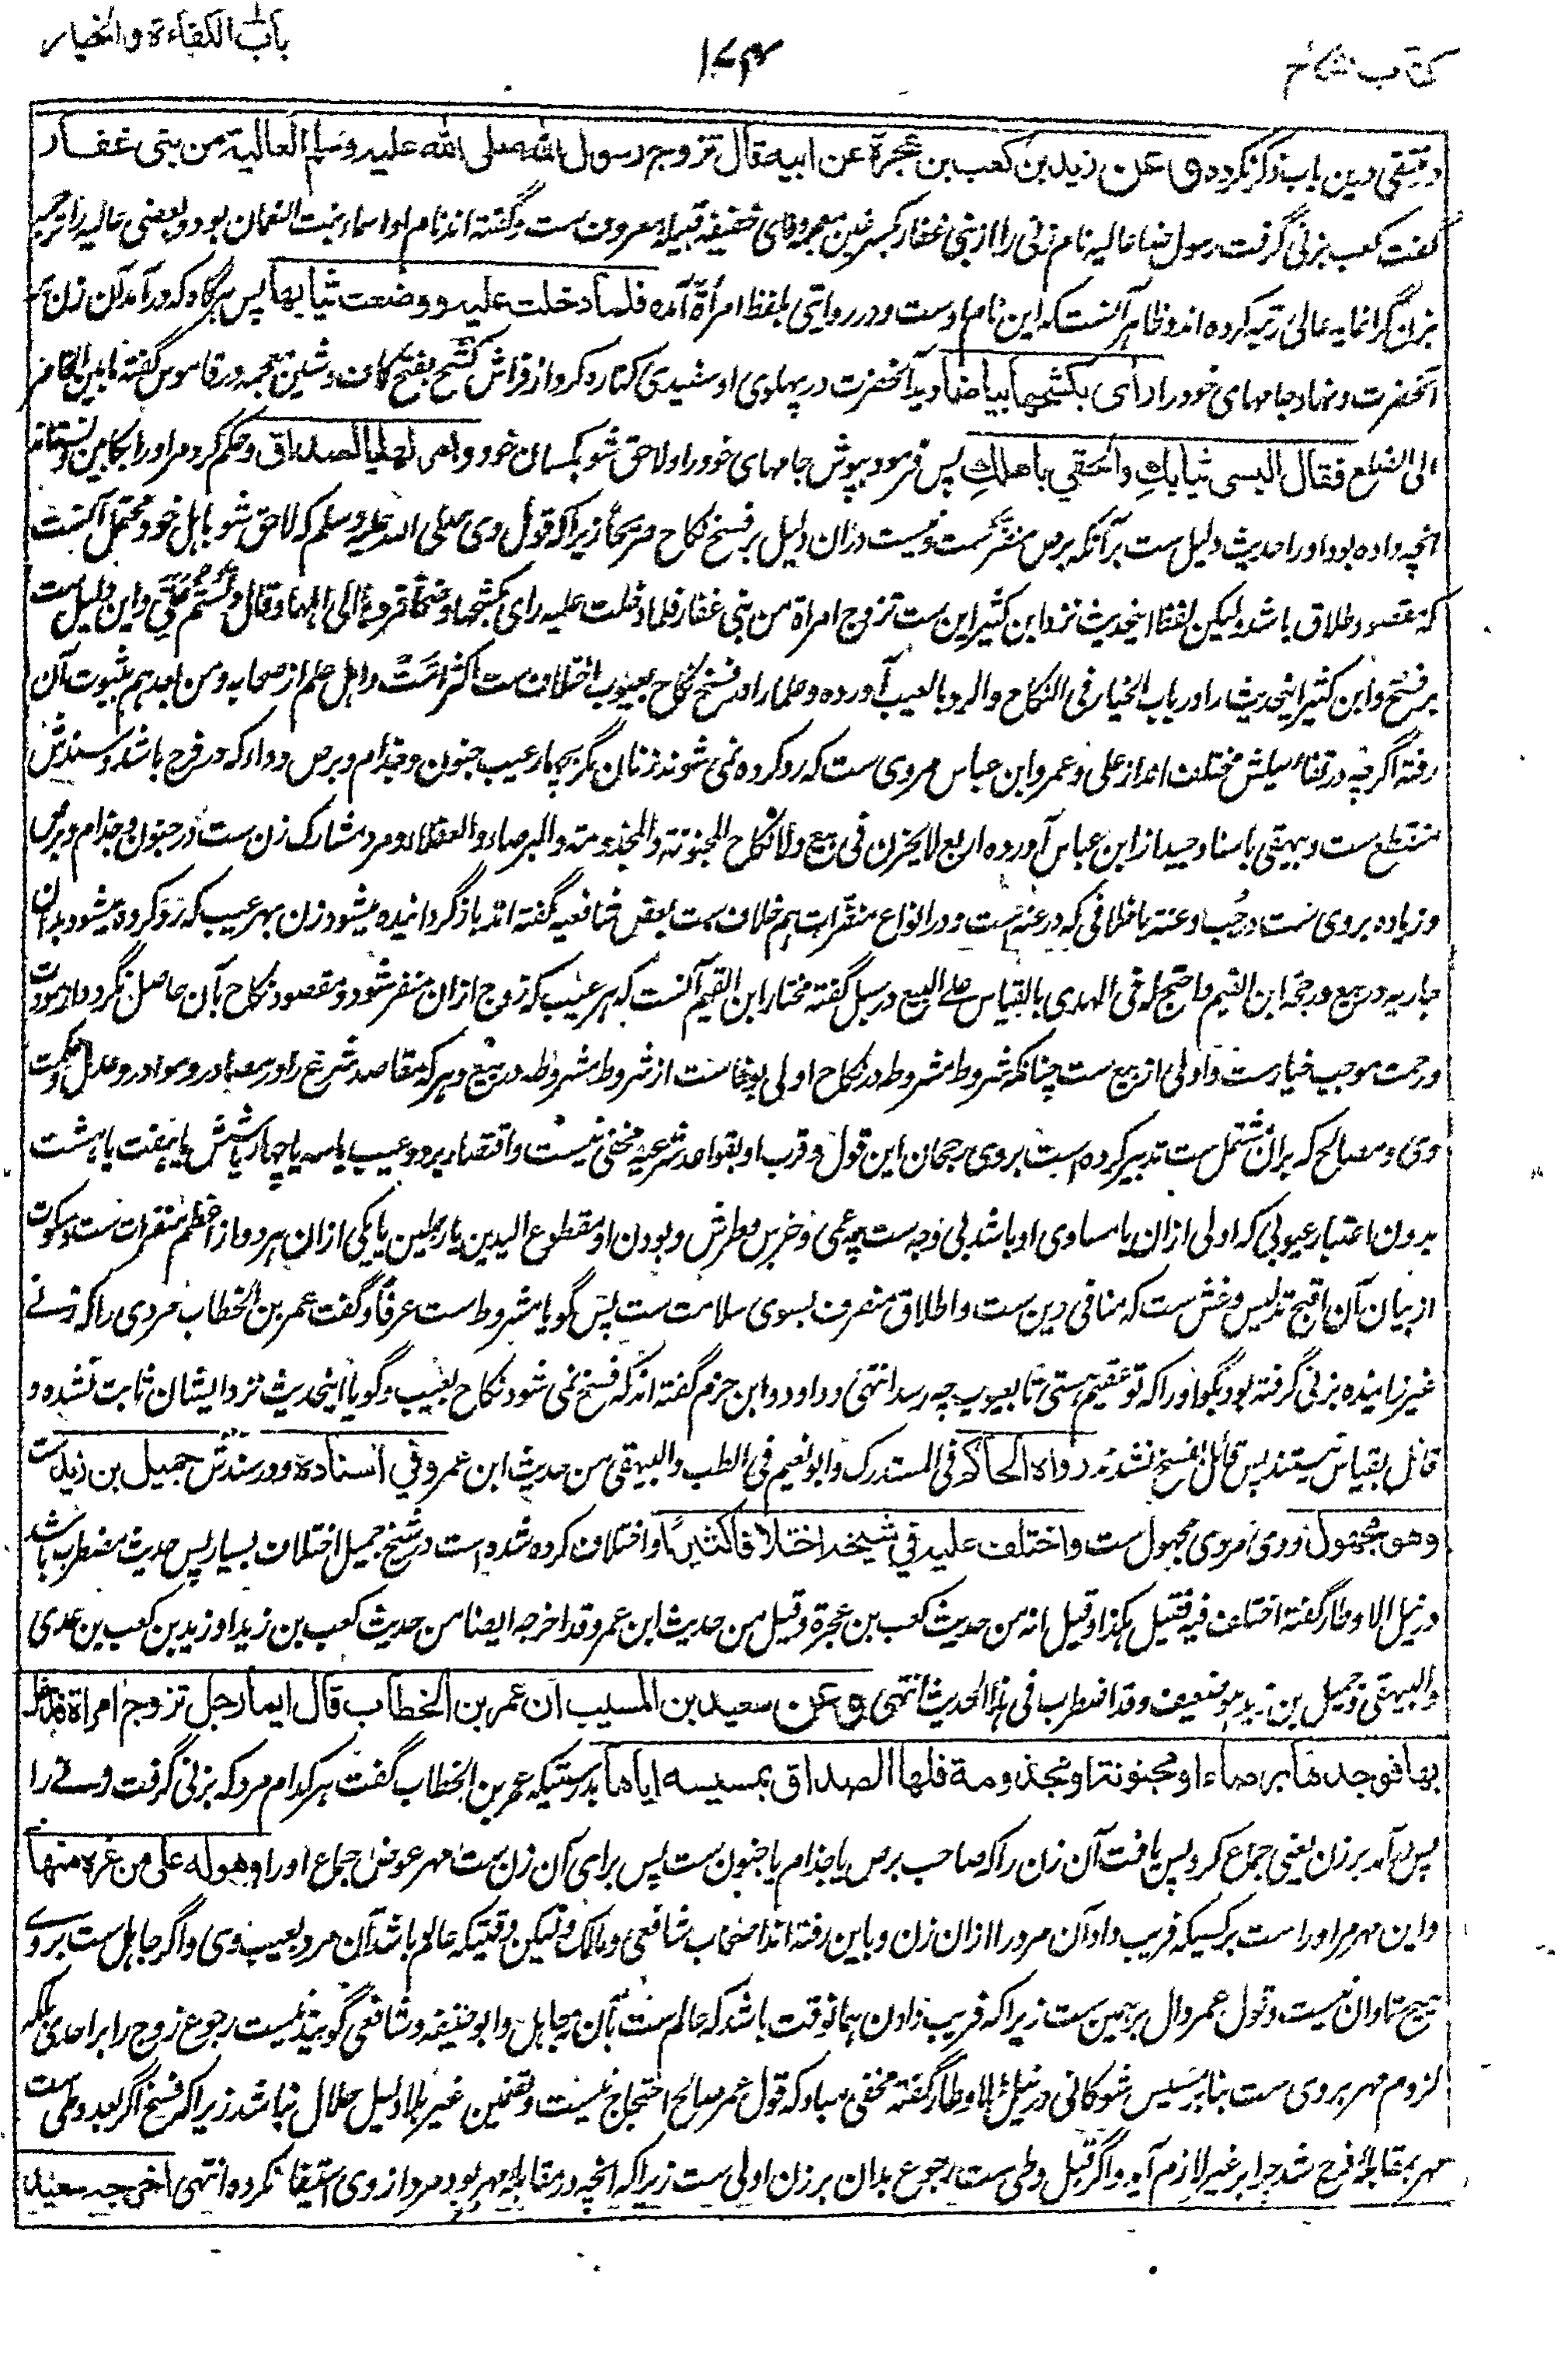 کتاب نکاح
۱۷۴
باب الکفاءة والخیار
دقیقی درین باب ذکر نکرده وعن زید بن کعب بن عجرة عن ابیه قال تزوج رسول الله صلی الله علیه وسلم العالیة من بنی غفار
گفت کعب بزنی گرفت رسول خدا عالیه نام زنی را از بنی غفار بکسر غین معجمه وفای خفیفه قبیله معروف ست وگفته اند نام او اسماء بنت النعمان بود وبعضی عالیه را ترجمه
بزن گرانمایه عالی رتبه کرده اند وظاهر آنست که این نام اوست ودر روایتی بلفظ امرأة آمده فلما دخلت علیه ووضعت ثیابها پس هرگاه که درآمد آن زن بر
آنحضرت ونهاد جامهای خود را رأی بکشحها بیاضا دید آنحضرت در پهلوی او سفیدی کناره کرد از فراش کشح بفتح کاف وشین معجمه در قاموس گفته ما بین الخاصرة
الی الضلع فقال البسی ثیابكِ والحقی باهلكِ پس فرمود بپوش جامهای خود را ولاحق شو بکسان خود وامر لها بالصداق وحکم کرد مر او را بکابین ونستاند
انچه داده بود او را حدیث دلیل ست برآنکه برص منفّر ست ونیست دران دلیل بر فسخ نکاح صریحًا زیرا که قول وی صلی الله علیه وسلم که لاحق شو باهل خود محتمل آنست
که مقصود طلاق باشد ولیکن لفظ اینحدیث نزد ابن کثیر این ست تزوج امراة من بنی غفار فلما دخلت علیه رای بکشحها وضحًا فردها الی اهلها وقال دلستم علیّ واین دلیل ست
بر فسخ وابن کثیر اینحدیث را در باب الخیار فی النکاح والرد بالعیب آورده وعلما را در فسخ نکاح بعیوب اختلاف ست اکثر امت واهل علم از صحابه ومن بعدهم بثبوت آن
رفته اگرچه در تفاصیلش مختلف اند از علی وعمر وابن عباس مروی ست که رد کرده نمی شوند زنان مگر بچهار عیب جنون وجذام وبرص وداء که در فرج باشد وسندش
منقطع ست وبیهقی باسناد جید از ابن عباس آورده اربع لا یجزن فی بیع ولا نکاح المجنونة والمجذومة والبرصاء والعفلاء ومرد مشارک زن ست در جنون وجذام وبرص
وزیاده بروی ست در جُب وعنة با خلافی که در عنه است ودر انواع منفّرات هم خلاف ست بعض شافعیه گفته اند باز گردانیده میشود زن بهر عیب که رد کرده میشود بدان
جاریه در بیع ورجحه ابن القیم واحتج له فی الهدی بالقیاس علی البیع در سبل گفته مختار ابن القیم آنست که هر عیب که زوج ازان متنفر شود ومقصود نکاح بآن حاصل نگردد از مودت
ورحمت موجب خیار ست واولی از بیع ست چنانکه شروط مشروطه در نکاح اولی بوفا ست از شروط مشروطه در بیع وهر که مقاصد شرع را در مصادر وموارد وعدل وحکمت
وی ومصالح که بران مشتمل ست تدبیر کرده است بروی رجحان این قول وقرب او بقواعد شرعیه مخفی نیست واقتصار بر دو عیب یا سه یا چهار یا شش یا هفت یا هشت
بدون اعتبار عیوبی که اولی ازان یا مساوی او باشد بی وجه ست چه عمی وخرس وطرش وبودن او مقطوع الیدین یا رجلین یا یکی ازان هر دو از اعظم منفرات ست وسکوت
از بیان آن اقبح تدلیس وغش ست که منافی دین ست واطلاق منصرف بسوی سلامت ست پس گویا مشروط ست عرفًا وگفت عمر بن الخطاب مردی را که زنے
غیر زاینده بزنی گرفته بود بگو او را که تو عقیم هستی تا بعیوب چه رسد انتهی وداود وابن حزم گفته اند که فسخ نمی شود نکاح بعیب وگویا اینحدیث نزد ایشان ثابت نشده و
قائل بقیاس نیستند پس قائل بفسخ نشدند رواه الحاکم فی المستدرک وابو نعیم فی الطب والبیهقی من حدیث ابن عمر وفی اسناده ودر سندش جمیل بن زید ست
وهو مجهول ووی مروی مجهول ست واختلف علیه فی شیخه اختلافا کثیرًا واختلاف کرده شده است در شیخ جمیل اختلاف بسیار پس حدیث مضطرب باشد
در نیل الاوطار گفته اختلف فیه فقیل هکذا وقیل انه من حدیث کعب بن عجرة وقیل من حدیث ابن عمر وقد اخرجه ایضا من حدیث کعب بن زید او زید بن کعب بن عدی
والبیهقی وجمیل بن زید هو ضعیف وقد اضطرب فی هذا الحدیث انتهی وعن سعید بن المسیب ان عمر بن الخطاب قال ایما رجل تزوج امراة فدخل
بها فوجدها برصاء او مجنونة او مجذومة فلها الصداق بمسیسه ایاها بدرستیکه عمر بن الخطاب گفت هر کدام مرد که بزنی گرفت زنے را
پس درآمد بر زن یعنی جماع کرد پس یافت آن زن را که صاحب برص یا جذام یا جنون ست پس برای آن زن ست مهر عوض جماع او را وهو له علی من غره منها
واین مهر مر او را ست بر کسیکه فریب داد آن مرد را ازان زن وباین رفته اند اصحاب شافعی ومالک ولیکن وقتیکه عالم باشد آن مرد بعیب وی واگر جاهل ست بروے
هیچ تاوان نیست وقول عمر دال برهمین ست زیرا که فریب دادن همانوقت باشد که عالم ست بآن نه جاهل وابو حنیفه وشافعی گویند نیست رجوع زوج را بر احدی بلکه
لزوم مهر بروی ست بنا بر مسیس شوکانی در نیل الاوطار گفته مخفی مباد که قول عمر صالح احتجاج نیست وتضمین غیر بلا دلیل حلال نباشد زیرا که فسخ اگر بعد وطی ست
مهر بمقابلهٔ فرج شد چرا بر غیر لازم آید واگر قبل وطی ست رجوع بدان بر زن اولی ست زیرا که انچه در مقابله مهر بود مرد از وی استیفا نکرده انتهی اخرجه سعید